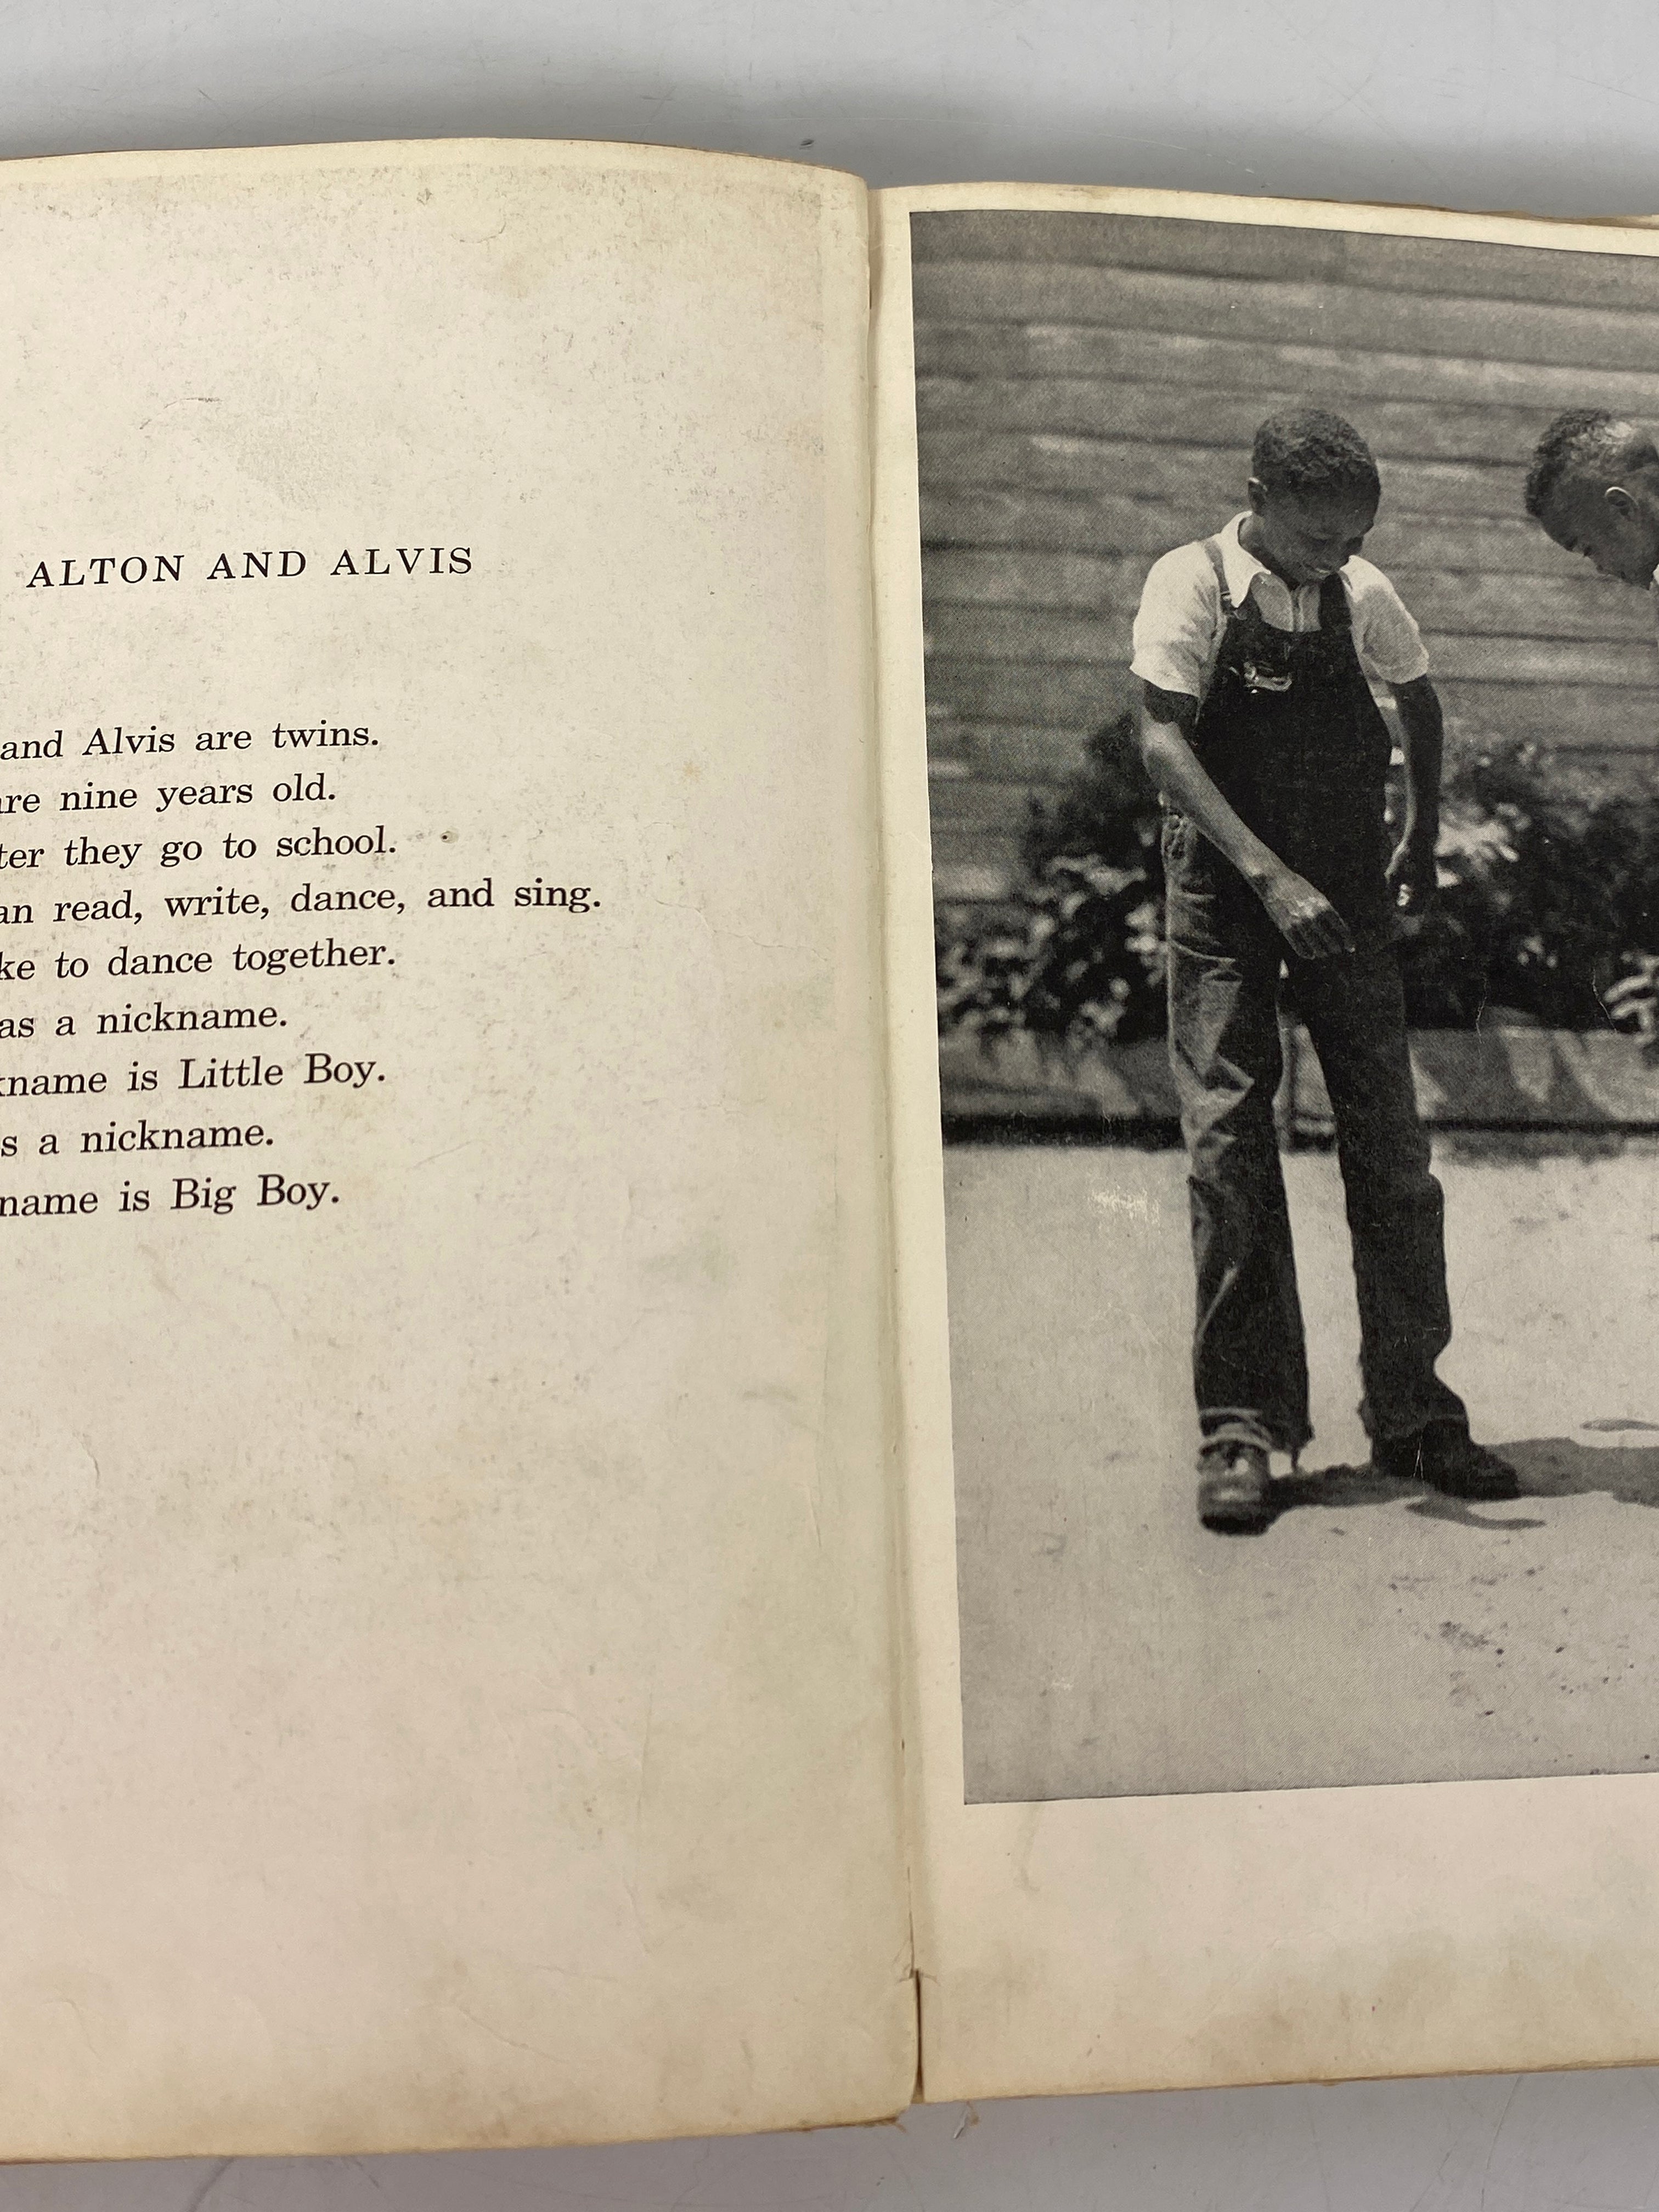 ALTON AND ALVIS
and Alvis are twins.
are nine years old.
ter they go to school.
an read, write, dance, and sing.
ke to dance together.
as a nickname.
kname is Little Boy.
s a nickname.
name is Big Boy.